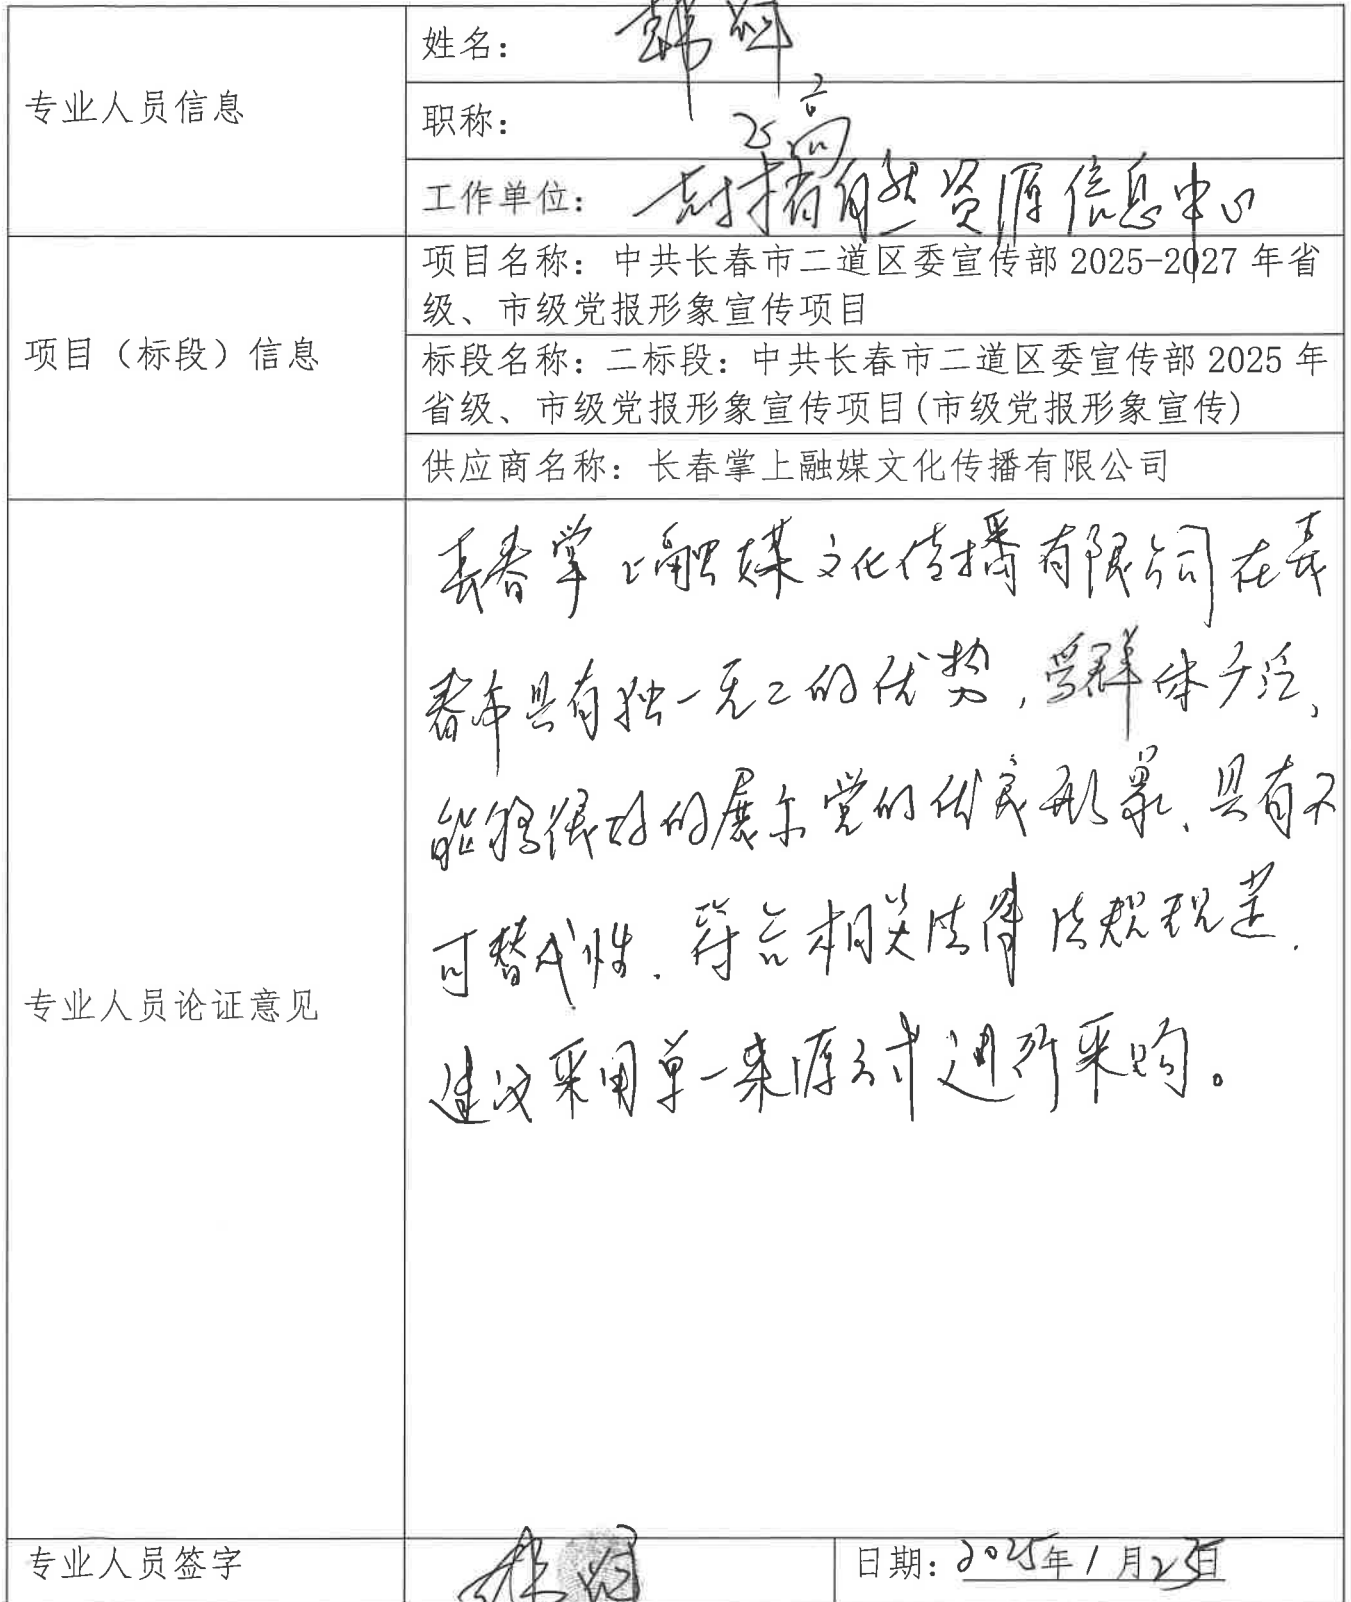 专业人员信息
姓名：
职称： 正高
工作单位： 吉林省自然资源信息中心
项目（标段）信息
项目名称：中共长春市二道区委宣传部 2025-2027 年省
级、市级党报形象宣传项目
标段名称：二标段：中共长春市二道区委宣传部 2025 年
省级、市级党报形象宣传项目(市级党报形象宣传)
供应商名称：长春掌上融媒文化传播有限公司
专业人员论证意见
长春掌上融媒文化传播有限公司在长
春市具有独一无二的优势，受群体广泛，
能够很好的展示党的优良形象、具有不
可替代性．符合相关法律法规规定．
建议采用单一来源方式进行采购。
专业人员签字
日期：2025年1月23日